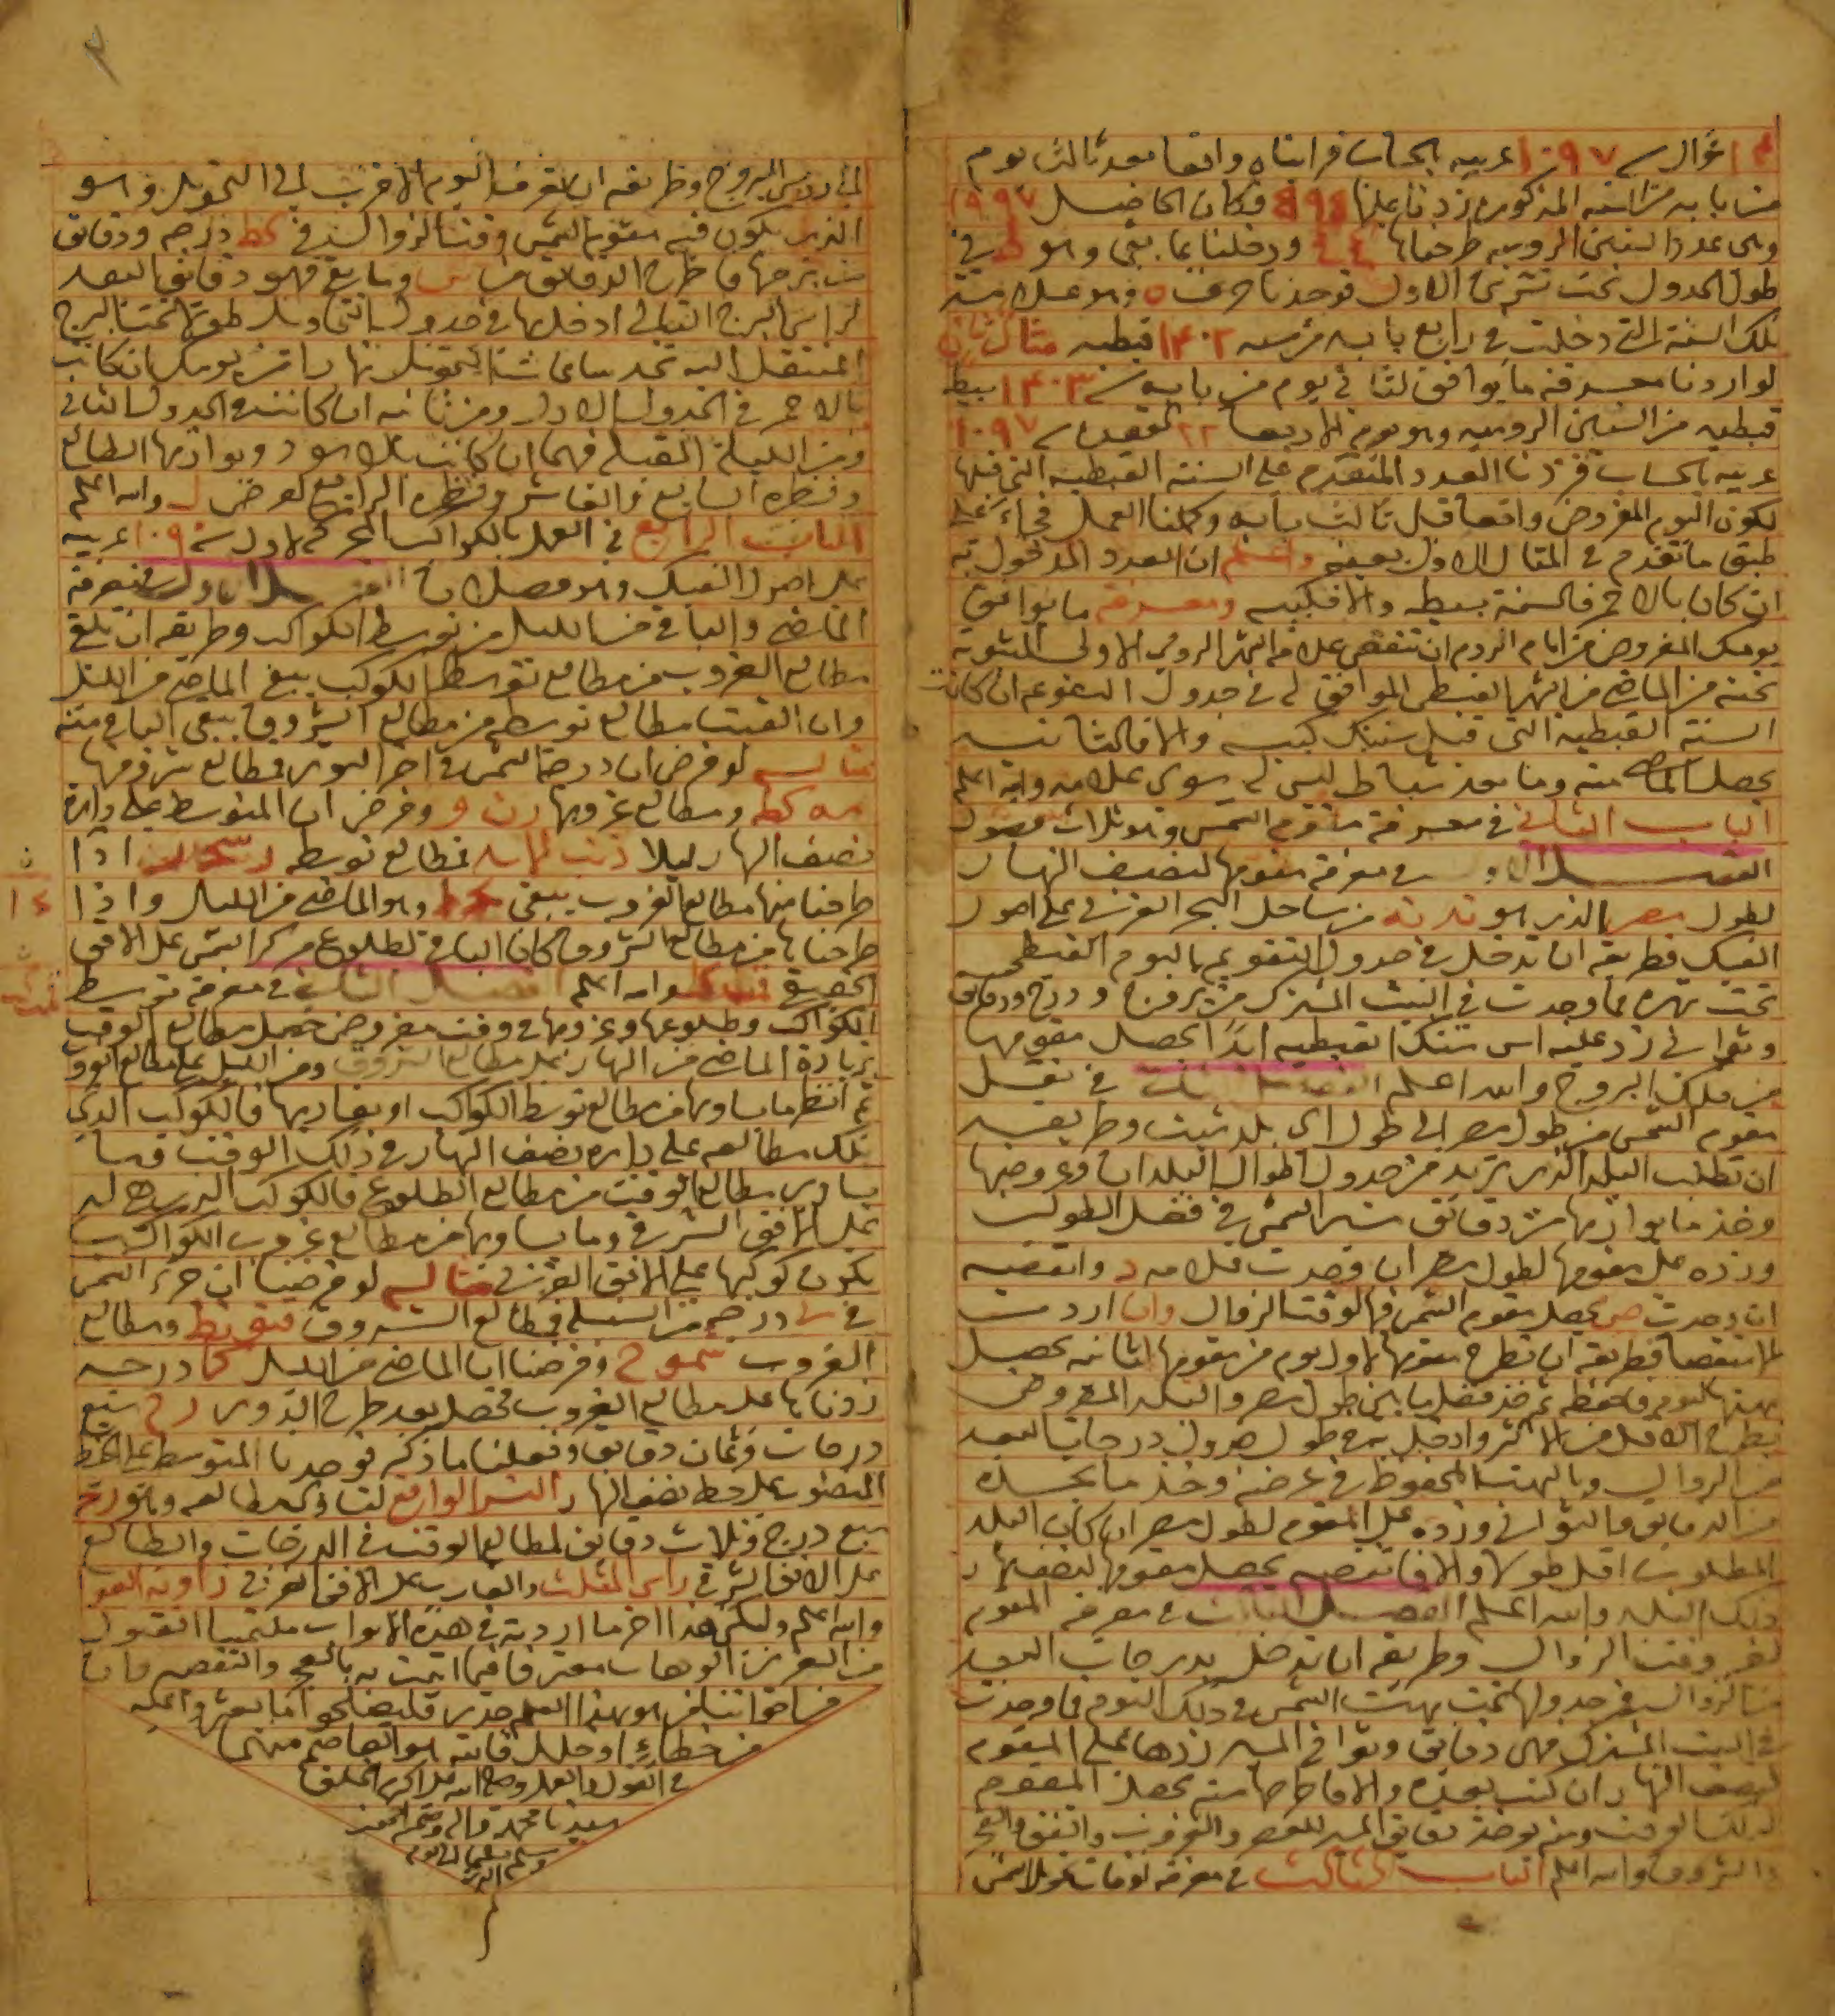 شوال سنة ١٠٩٧ عربيه بالحساب فرايناه واقعا بعد ثالث يوم
من بابه من السنه المذكوره زدنا عليها فكان الحاصل ١٩٩٧
وهى عدد السنين الروميه طرحناها ودخلنا بما بقى وهو فى
طول الجدول تحت تشرين الاول فوجدنا حرف ه وهو علامة
تلك السنة التى دخلت فى رابع بابه من سنه ١٤٠٢ قبطيه مثال ثان
لو اردنا معرفة ما يوافق ثانى يوم من بابه سنة ١٤٠٣ بسيطه
قبطيه من السنين الروميه وهو يوم الاربعا ٢٢ القعده سنة ١٠٩٧
عربيه بالحساب فزدنا العدد المتقدم على السنة القبطيه التى قبلها
لكون اليوم المفروض واقعا قبل ثالث بابه وكملنا العمل فجاء على
طبق ما تقدم فى المثال الاول بعينه واعلم ان العدد المدخول به
ان كان بالاحمر فالسنة بسيطه والا فكبيسه ومعرفة ما يوافق
يومك المفروض من ايام الروم ان تنقص علامة الشهر الرومى الاولى المثبوته
تحته من الماضى من الشهر القبطى الموافق له فى جدول ان كانت
السنة القبطيه التى قبل سنتك كبيسه والا فالثانيه
يحصل الماضى منه وما بعد شباط ليس له سوى علامه والله اعلم
الباب الثانى فى معرفة مقوم الشمس وهو ثلاث فصول
الفصل الاول فى معرفة مقومها لنصف النهار
لطول مصر الذى هو نه من ساحل البحر الغربى على اصول
الفبك فطريقه ان تدخل فى جدول التقويم باليوم القبطى
تحت شهره فما وجدت فى البيت المشترك من بروج ودرج ودقايق
وثوانى زد عليه اس سنتك القبطيه ابدا يحصل مقومها
من فلك البروج والله اعلم الفصل الثانى فى نقل
مقوم الشمس من طول مصر الى طول اى بلد شيت وطريقه
ان تطلب البلد الذى تريد من جدول اطوال البلدان وعروضها
وخذ ما بوازيها من دقائق سير الشمس فى فضل الطولين
وزده على مقومها لطول مصر ان وجدت علامه د وانقصه
ان وجدت ص يحصل مقوم الشمس فى الوقت الزوال وان اردت
الاستقصا فطريقه ان تطرح مقومها لاول يوم من مقومها لثانيه يحصل
بهتها اليوم فاحفظه ثم خذ فضل ما بين طول مصر والبلد المفروض
بطرح الاقل من الاكثر وادخل به فى طول جدول درجات البعد
من الزوال وبالبهت المحفوظ فى عرضه وخذ ما تجده
من الدقايق والثوانى وزده على المقوم لطول مصر ان كان البلد
المطلوب اقل طولا والا فانقصه يحصل مقومها لنصف نهار
ذلك البلد والله اعلم الفصل الثالث فى معرفة المقوم
لغير وقت الزوال وطريقه ان تدخل بدرجات البعد
من الزوال فى جدولها تحت بهت الشمس فى ذلك اليوم فما وجدت
فى البيت المشترك فهى دقائق وثوانى المسير زدها على المقوم
لنصف النهار ان كنت بعده والا فاطرحها منه يحصل المقوم
لذلك الوقت ومنه يوخذ دقائق المسير للعصر والغروب والشفق والفجر
والشروق والله اعلم الباب الثالث فى معرفة اوقات تحويل الشمس
الى رؤس البروج وطريقه ان تعرف اليوم الاقرب الى التحويل وهو
الذى يكون فيه مقوم الشمس وقت الزوال فى كط درجه ودقائق
من برجها فاطرح الدقائق من س وما بقى فهو دقائق البعد
لراس البرج التالى ادخل بها فى جدول التحاويل طولا تحت البرج
المنتقل اليه تجد ساعات التحويل نهارا من يومك ان كانت
بالاحمر فى الجدول الاول ومن ثانيه ان كانت فى الجدول الثانى
ومن الليلة المقبله فيهما ان كانت بالاسود وبوازيها الطالع
ونظيره السابع والعاشر ونظيره الرابع لعرض ل والله اعلم
الباب الرابع فى العمل بالكواكب المحركه لاول سنة عربيه
على اصول الفبك وهو فصلان الفصل الاول فى معرفة
الماضى والباقى من الليل من توسط الكواكب وطريقه ان تلقى
مطالع الغروب من مطالع توسط الكوكب يبقى الماضى من الليل
وان القيت مطالع توسطه من مطالع الشروق يبقى الباقى منه
مثاله لو فرض ان درجة الشمس فى اخر القوس فمطالع شروقها
كط ومطالع غروبها وفرض ان المتوسط على دايرة
نصف النهار ليلا ذنب الاسد فمطالع توسطه اذا
طرحنا منها مطالع الغروب يبقى وهو الماضى من الليل واذا
طرحناها من مطالع الشروق كان الباقى لطلوع مركز الشمس على الافق
الحقيقى والله اعلم الفصل الثانى فى معرفة توسط
الكواكب وطلوعها وغروبها فى وقت مفروض حصل مطالع الوقت
بزيادة الماضى من النهار على مطالع الشروق ومن الليل على مطالع الغروب
ثم انظر ما يساويها من مطالع توسط الكواكب او يقاربها فالكوكب الذى
تلك مطالعه على دايرة نصف النهار فى ذلك الوقت وما
يساوى مطالع الوقت من مطالع الطلوع فالكوكب الذى هى له
على الافق الشرقى وما يساويها من مطالع غروب الكواكب
يكون كوكبها على الافق الغربى مثاله لو فرضنا ان جزء الشمس
فى درجه من السنبله فمطالع الشروق ومطالع
الغروب وفرضنا ان الماضى من الليل كا درجه
زدناها على مطالع الغروب تحصل بعد طرح الدور سبع
درجات وثمان دقايق وفعلنا ما ذكر فوجدنا المتوسط على الخط
على خط نصف النهار النسر الواقع لتساوى مطالعه
سبع درج وثلاث دقايق لمطالع الوقت فى الدرجات والطالع
على الافق الشرقى راس المثلث والغارب على الافق الغربى زاوية العوا
والله اعلم وليكن هذا اخر ما اردته فى هذه الابواب ملتمسا القبول
من العزيز الوهاب معترفا فيما اتيت به بالعجز والتقصير فان
من اخواننا من هو بهذا العلم جدير فليصلح ما يعثر عليه
من خطاء او خلل فانه هو العاصم منهما
فى القول والعمل وصلى الله على اكرم الخلق
سيدنا محمد واله وصحبه اجمعين
وسلم تسليما الى يوم
الدين